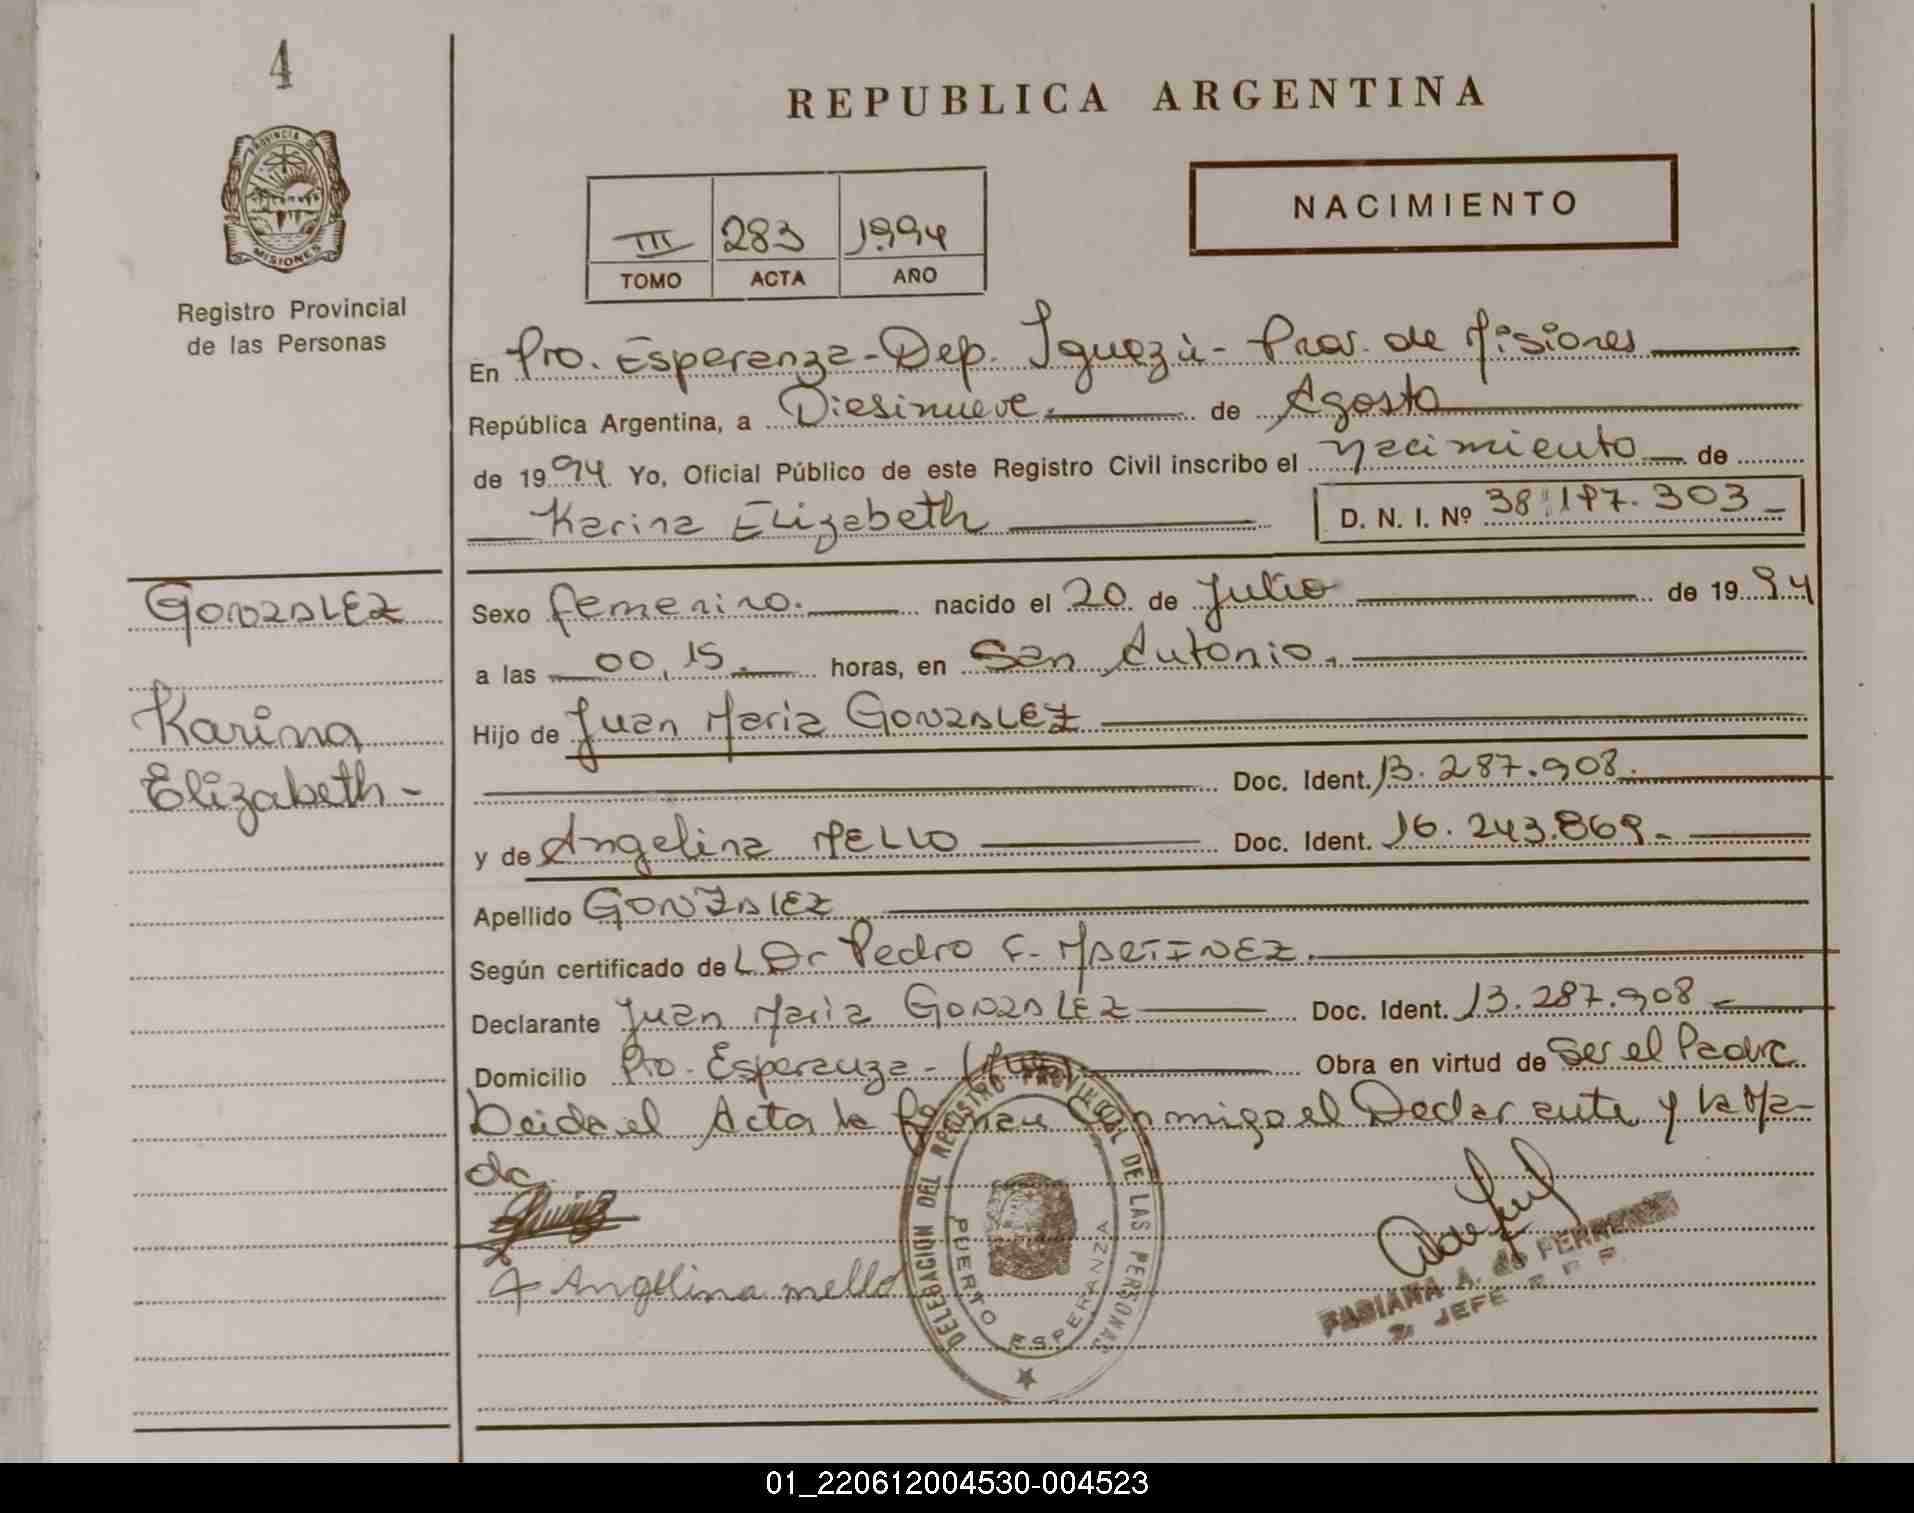 4
REPUBLICA ARGENTINA
PROVINCIA DE
MISIONES
NACIMIENTO
III 283 1994
TOMO ACTA AÑO
Registro Provincial
de las Personas
En Pto. Esperanza - Dep. Iguazú - Prov. de Misiones
República Argentina, a Diesinueve. de Agosto
de 1994 Yo, Oficial Público de este Registro Civil inscribo el nacimiento de
Karina Elizabeth D. N. I. Nº 38.197.303
GONZALEZ
Karina
Elizabeth -
Sexo femenino. nacido el 20 de Julio de 1994
a las 00,15 horas, en San Antonio.
Hijo de Juan Maria GONZALEZ
Doc. Ident. 13.287.908.
y de Angelina MELLO Doc. Ident. 16.243.869.-
Apellido GONZALEZ
Según certificado de Dr Pedro F. MARTINEZ.
Declarante Juan Maria GONZALEZ Doc. Ident. 13.287.908
Domicilio Pto. Esperanza - Obra en virtud de ser el Padre
Leida el Acta la firman conmigo el Declarante y la Ma-
dre
Angelina mello
DELEGACION DEL REGISTRO PROVINCIAL DE LAS PERSONAS
PUERTO ESPERANZA
FABIANA A. de
JEFE R P P.
01_220612004530-004523